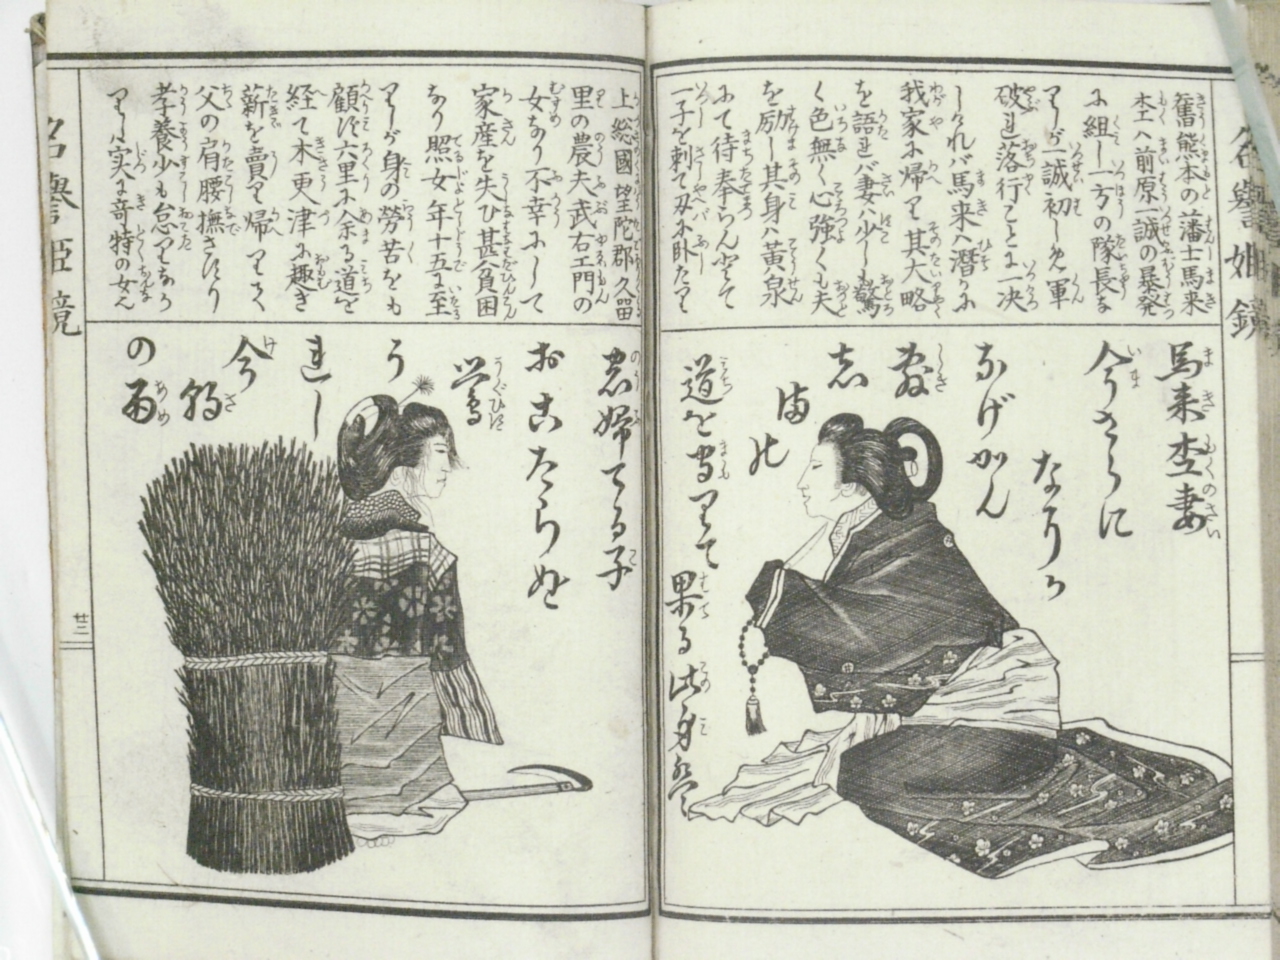 舊熊本の藩士馬来
杢ハ前原一誠の暴発
に組し一方の隊長な
りしが一誠初しめ軍
破れ落行ことに一决
しけれバ馬来ハ潜かに
我家に帰り其大略
を語れバ妻ハ少しも驚
く色無く心強くも夫
を励し其身ハ黄泉
にて待奉らんとて
一子を刺て刄に卧たり
馬来杢妻
今さらに
なにか
なげかん
敷
志
ま
の
道を守りて
果る此身
名譽姫鏡
上総國望陀郡久留
里の農夫武右エ門の
女なり不幸にして
家産を失ひ甚貧困
なり照女年十五に至
りしが身の労苦をも
顧ず六里に余る道を
経て木更津に趣き
薪を賣り帰りてハ
父の肩腰撫さすり
孝養少も怠りなか
りしハ実に竒特の女
農婦てる子
おこたらぬ
鴬
う
れし
今
朝
の雨
名譽姫鏡
廿二